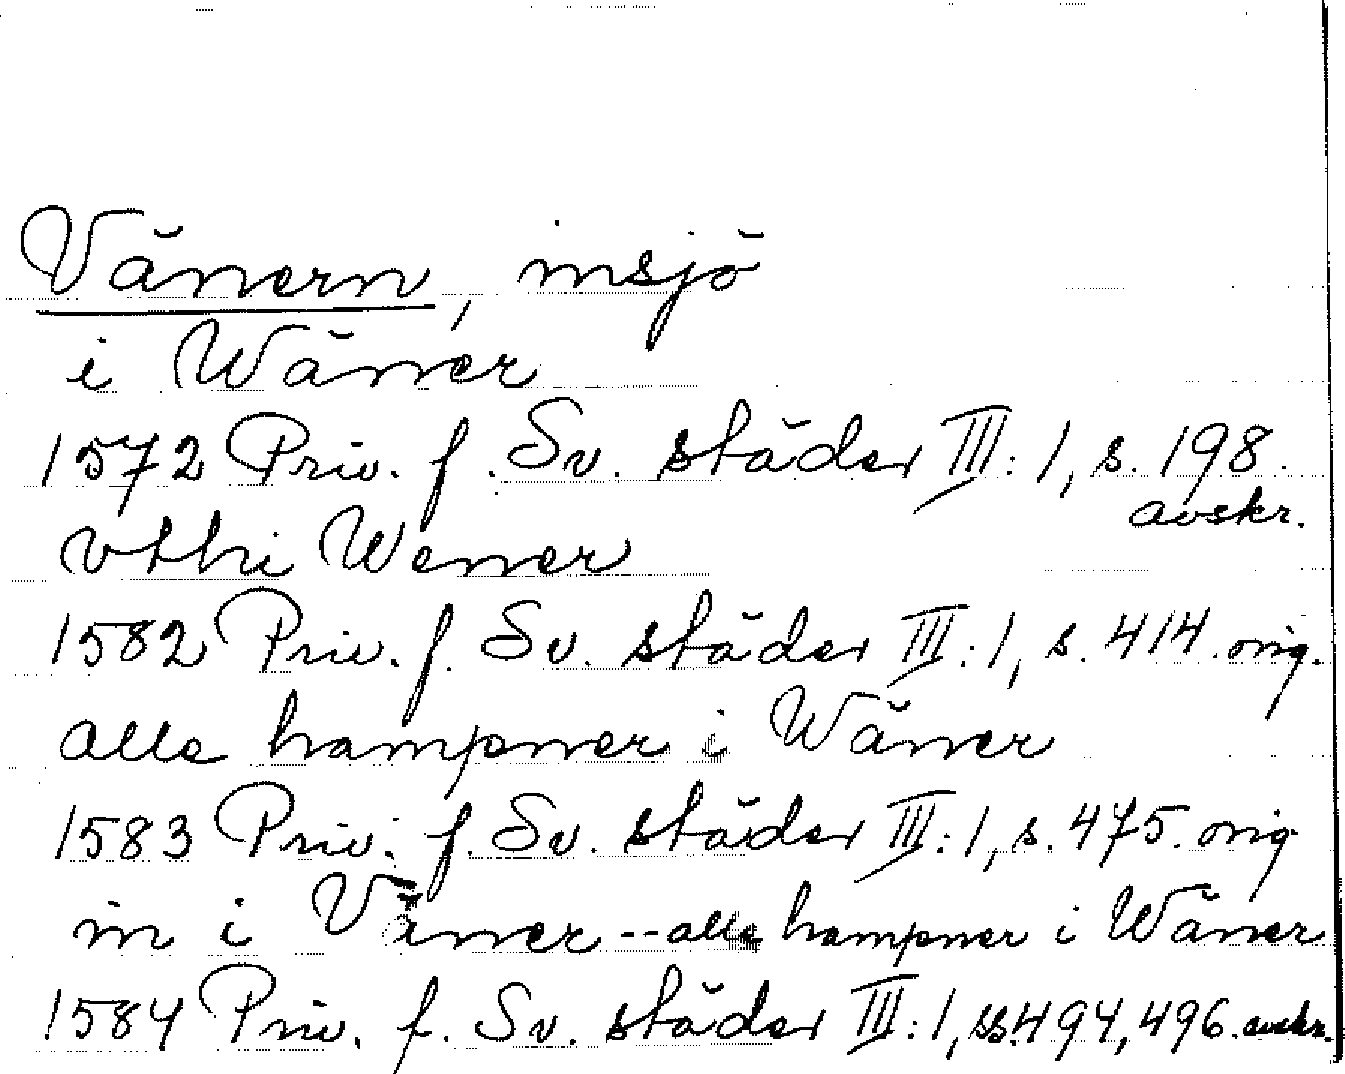 Vänern, insjö
i Wäner
1572 Priv. f. Sv. städer III: 1, s. 198.
avskr.
vthi Wener
1582 Priv. f. Sv. städer III: 1, s. 414. orig.
alle hampner i Wäner
1583 Priv. f. Sv. städer III: 1, s. 475. orig
in i Väner -- alle hampner i Wäner
1584 Priv. f. Sv. städer III: 1, ss. 494, 496. avskr.